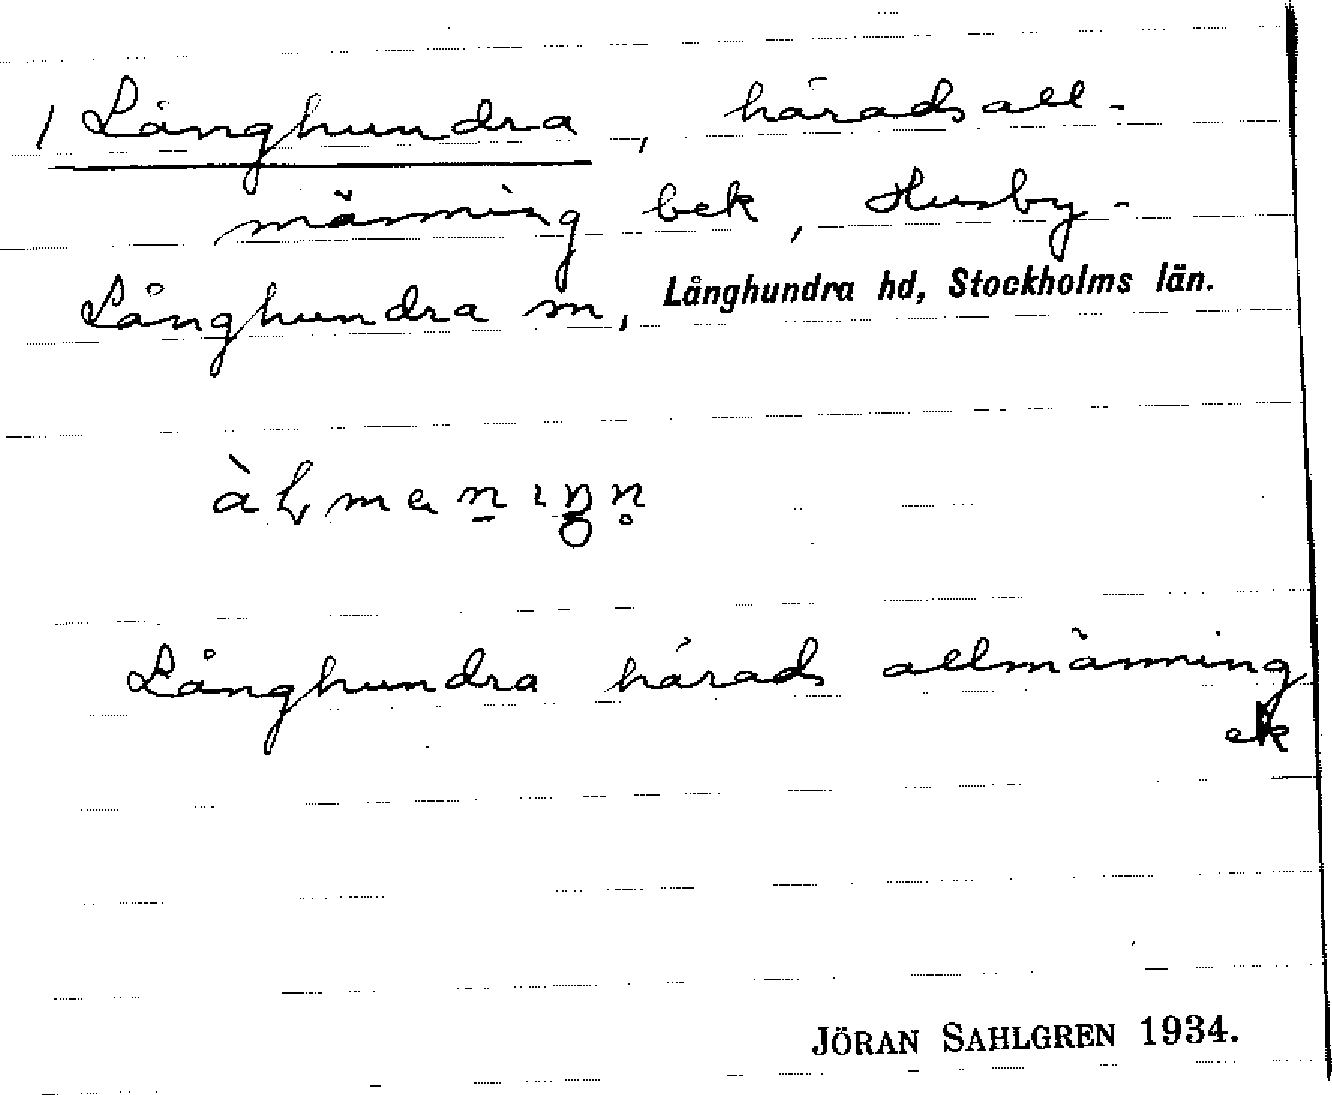 1 Långhundra, häradsall-
männing bek, Husby-
Långhundra m, Långhundra hd, Stockholms län.
Långhundra härads allmänning
ek
JÖRAN SAHLGREN 1934.